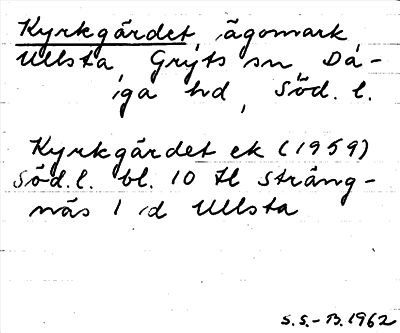 Kyrkgärdet, ägomark,
Ullsta, Gryts sn Då-
ga hd, Söd. l.
Kyrkgärdet ek (1959)
Söd.l. bl. 10 tl Sträng-
näs 1 d Ullsta
S.S.-B. 1962